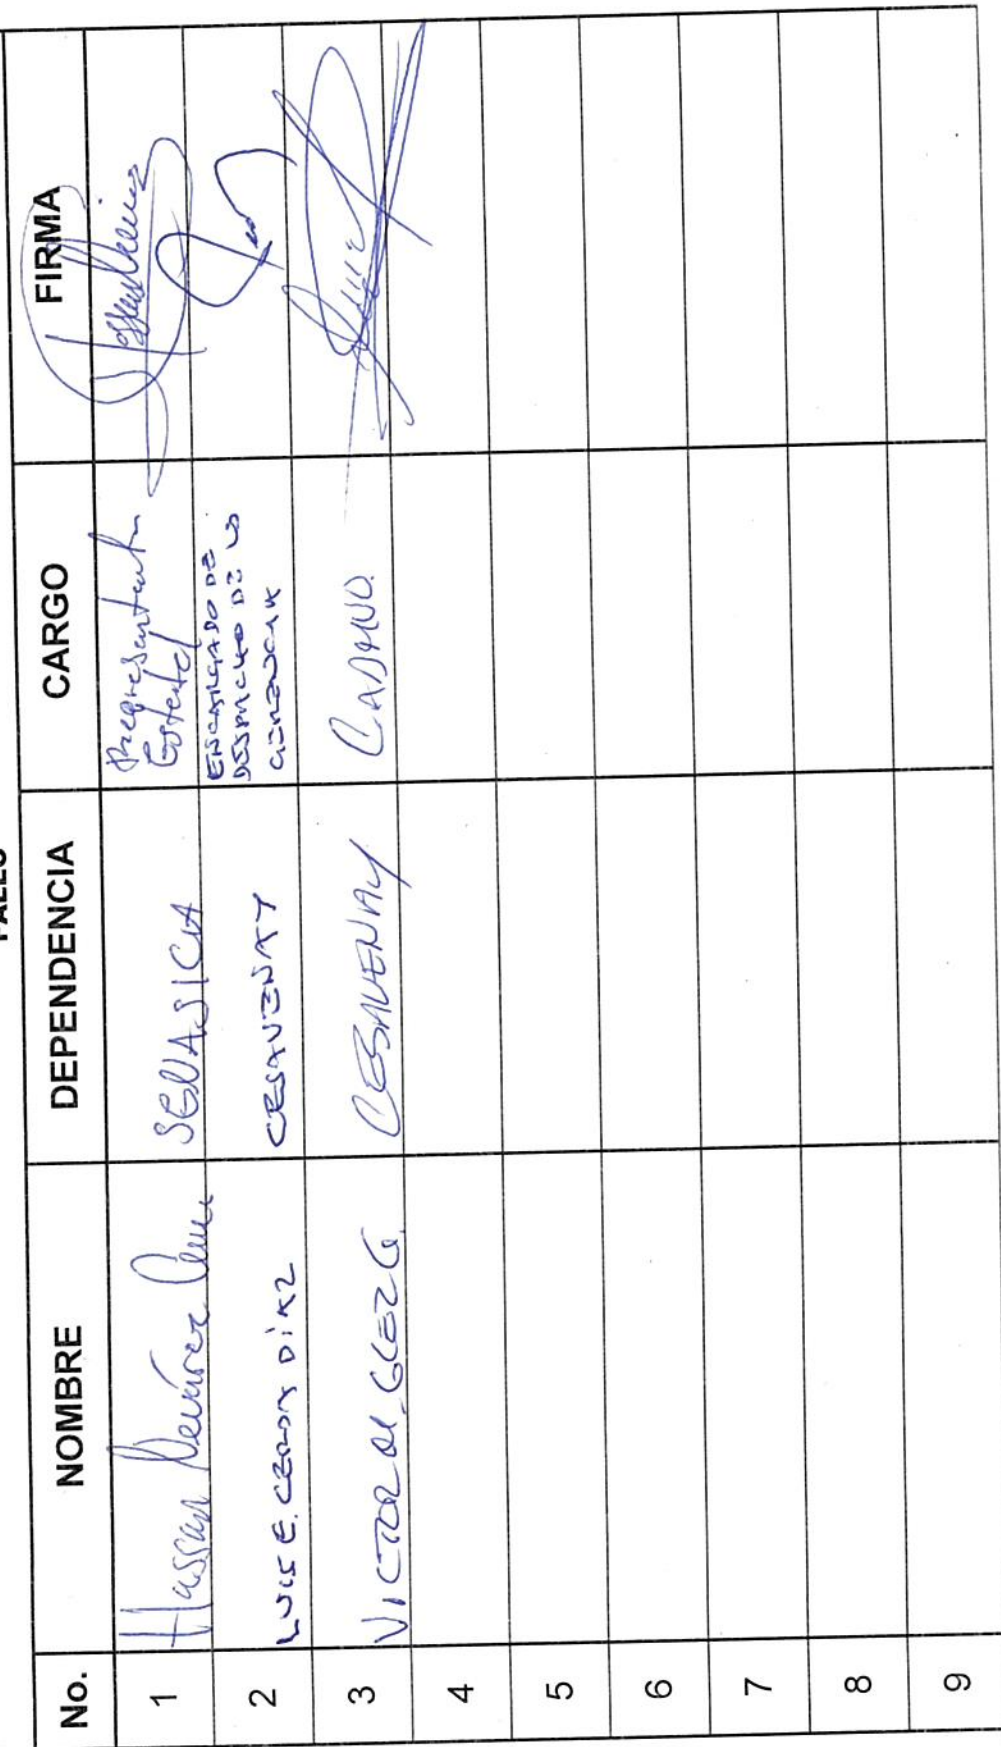 FALLO
No. NOMBRE DEPENDENCIA CARGO FIRMA
1 Hassan Nevárez SENASICA Representante Estatal
2 LUIS E. CERDA DÍAZ CESAVENAY ENCARGADO DE DESPACHO DE LA GERENCIA
3 VICTOR M. GLEZ G. CESAVENAY
4
5
6
7
8
9